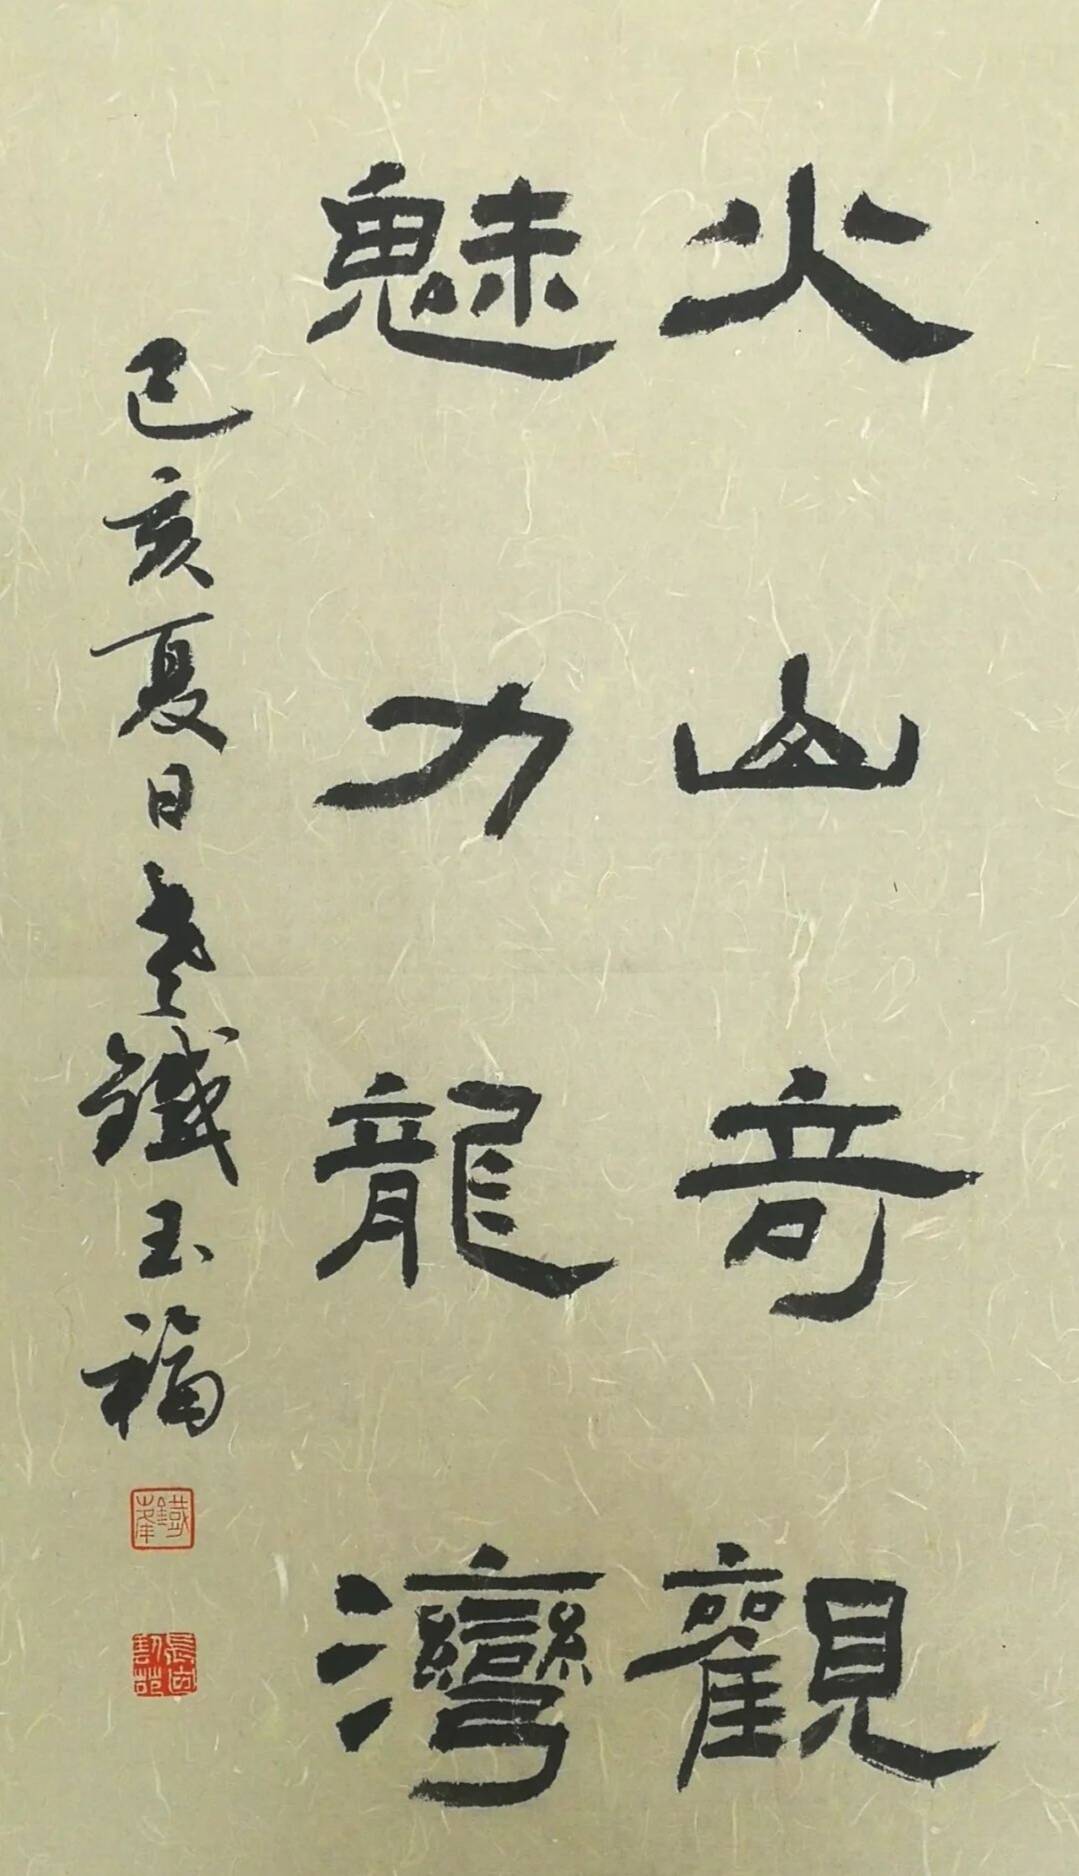 火山奇觀
魅力龍灣
己亥夏日老鐵玉福
鐵峯